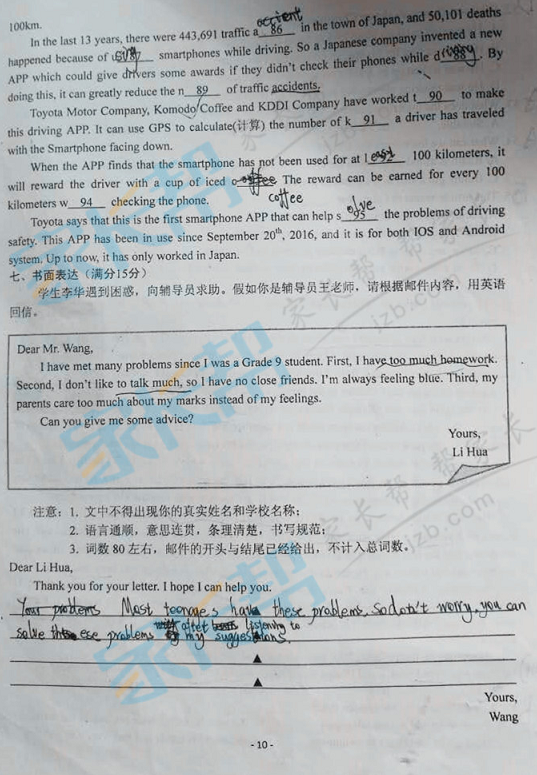 100km.
accident
In the last 13 years, there were 443,691 traffic a 86 in the town of Japan, and 50,101 deaths
happened because of using 87 smartphones while driving. So a Japanese company invented a new
APP which could give drivers some awards if they didn't check their phones while driving 88. By
doing this, it can greatly reduce the n 89 of traffic accidents.
Toyota Motor Company, Komodo Coffee and KDDI Company have worked t 90 to make
this driving APP. It can use GPS to calculate(计算) the number of k 91 a driver has traveled
with the Smartphone facing down.
When the APP finds that the smartphone has not been used for at least 92 100 kilometers, it
will reward the driver with a cup of iced c offee. The reward can be earned for every 100
kilometers w 94 checking the phone. coffee
Toyota says that this is the first smartphone APP that can help solve 95 the problems of driving
safety. This APP has been in use since September 20th, 2016, and it is for both IOS and Android
system. Up to now, it has only worked in Japan.
七、书面表达（满分15分）
学生李华遇到困惑，向辅导员求助。假如你是辅导员王老师，请根据邮件内容，用英语
回信。
Dear Mr. Wang,
I have met many problems since I was a Grade 9 student. First, I have too much homework.
Second, I don't like to talk much, so I have no close friends. I'm always feeling blue. Third, my
parents care too much about my marks instead of my feelings.
Can you give me some advice?
Yours,
Li Hua
注意：1. 文中不得出现你的真实姓名和学校名称；
2. 语言通顺，意思连贯，条理清楚，书写规范；
3. 词数 80 左右，邮件的开头与结尾已经给出，不计入总词数。
Dear Li Hua,
Thank you for your letter. I hope I can help you.
Your problems Most teenages have these problems, so don't worry, you can
solve these problems after listening to my suggestions.
▲
▲
Yours,
Wang
- 10 -
家长帮
家长帮 jzb.com